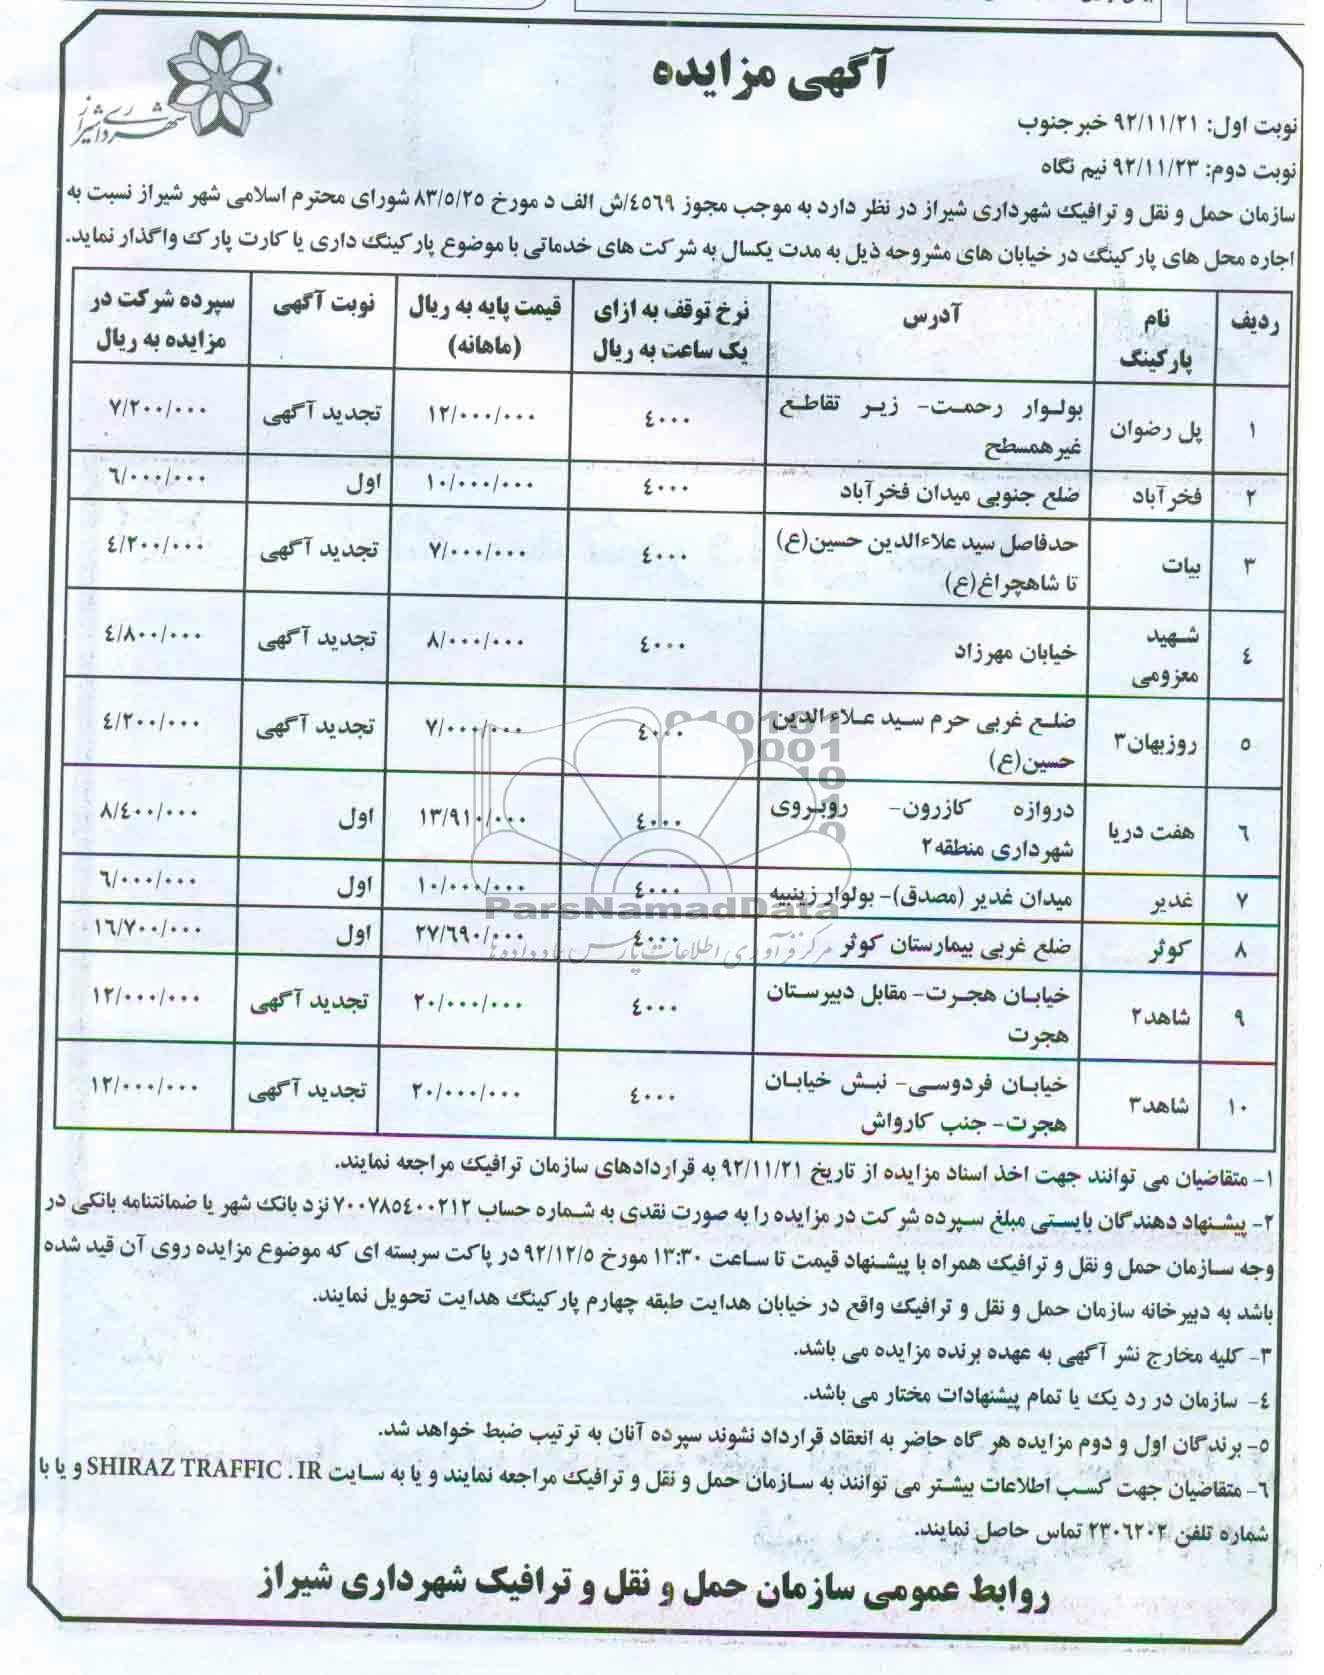 آگهی مزایده
شهرداری شیراز
نوبت اول: ۹۲/۱۱/۲۱ خبرجنوب
نوبت دوم: ۹۲/۱۱/۲۳ نیم نگاه
سازمان حمل و نقل و ترافیک شهرداری شیراز در نظر دارد به موجب مجوز ٤٥٦٩/ش الف د مورخ ۸۳/٥/۲٥ شورای محترم اسلامی شهر شیراز نسبت به
اجاره محل های پارکینگ در خیابان های مشروحه ذیل به مدت یکسال به شرکت های خدماتی با موضوع پارکینگ داری یا کارت پارک واگذار نماید.
ردیف | نام پارکینگ | آدرس | نرخ توقف به ازای یک ساعت به ریال | قیمت پایه به ریال (ماهانه) | نوبت آگهی | سپرده شرکت در مزایده به ریال
۱ | پل رضوان | بولوار رحمت- زیر تقاطع غیرهمسطح | ٤۰۰۰ | ۱۲/۰۰۰/۰۰۰ | تجدید آگهی | ۷/۲۰۰/۰۰۰
۲ | فخرآباد | ضلع جنوبی میدان فخرآباد | ٤۰۰۰ | ۱۰/۰۰۰/۰۰۰ | اول | ٦/۰۰۰/۰۰۰
۳ | بیات | حدفاصل سید علاءالدین حسین(ع) تا شاهچراغ(ع) | ٤۰۰۰ | ۷/۰۰۰/۰۰۰ | تجدید آگهی | ٤/۲۰۰/۰۰۰
٤ | شهید معزومی | خیابان مهرزاد | ٤۰۰۰ | ۸/۰۰۰/۰۰۰ | تجدید آگهی | ٤/۸۰۰/۰۰۰
٥ | روزبهان۳ | ضلع غربی حرم سید علاءالدین حسین(ع) | ٤۰۰۰ | ۷/۰۰۰/۰۰۰ | تجدید آگهی | ٤/۲۰۰/۰۰۰
٦ | هفت دریا | دروازه کازرون- روبروی شهرداری منطقه۲ | ٤۰۰۰ | ۱۳/۹۱۰/۰۰۰ | اول | ۸/٤۰۰/۰۰۰
۷ | غدیر | میدان غدیر (مصدق)- بولوار زینبیه | ٤۰۰۰ | ۱۰/۰۰۰/۰۰۰ | اول | ٦/۰۰۰/۰۰۰
۸ | کوثر | ضلع غربی بیمارستان کوثر | ٤۰۰۰ | ۲۷/٦۹۰/۰۰۰ | اول | ۱٦/۷۰۰/۰۰۰
۹ | شاهد۲ | خیابان هجرت- مقابل دبیرستان هجرت | ٤۰۰۰ | ۲۰/۰۰۰/۰۰۰ | تجدید آگهی | ۱۲/۰۰۰/۰۰۰
۱۰ | شاهد۳ | خیابان فردوسی- نبش خیابان هجرت- جنب کارواش | ٤۰۰۰ | ۲۰/۰۰۰/۰۰۰ | تجدید آگهی | ۱۲/۰۰۰/۰۰۰
ParsNamadData
مرکز فرآوری اطلاعات پارس نماد داده ها
۱- متقاضیان می توانند جهت اخذ اسناد مزایده از تاریخ ۹۲/۱۱/۲۱ به قراردادهای سازمان ترافیک مراجعه نمایند.
۲- پیشنهاد دهندگان بایستی مبلغ سپرده شرکت در مزایده را به صورت نقدی به شماره حساب ۷۰۰۷۸٥٤۰۰۲۱۲ نزد بانک شهر یا ضمانتنامه بانکی در
وجه سازمان حمل و نقل و ترافیک همراه با پیشنهاد قیمت تا ساعت ۱۳:۳۰ مورخ ۹۲/۱۲/٥ در پاکت سربسته ای که موضوع مزایده روی آن قید شده
باشد به دبیرخانه سازمان حمل و نقل و ترافیک واقع در خیابان هدایت طبقه چهارم پارکینگ هدایت تحویل نمایند.
۳- کلیه مخارج نشر آگهی به عهده برنده مزایده می باشد.
٤- سازمان در رد یک یا تمام پیشنهادات مختار می باشد.
٥- برندگان اول و دوم مزایده هر گاه حاضر به انعقاد قرارداد نشوند سپرده آنان به ترتیب ضبط خواهد شد.
٦- متقاضیان جهت کسب اطلاعات بیشتر می توانند به سازمان حمل و نقل و ترافیک مراجعه نمایند و یا به سایت SHIRAZ TRAFFIC . IR و یا با
شماره تلفن ۲۳۰٦۲۰۲ تماس حاصل نمایند.
روابط عمومی سازمان حمل و نقل و ترافیک شهرداری شیراز